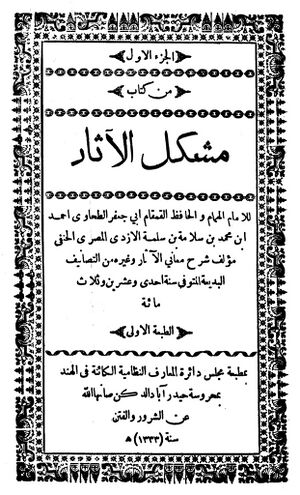 الجزء الاول
من كتاب
مشكل الآثار
للامام الهمام والحافظ القمقام ابي جعفر الطحاوي احمد
ابن محمد بن سلامة بن سلمة الازدي المصري الحنفي
مؤلف شرح معاني الآثار وغيره من التصانيف
البديعة المتوفى سنة احدى وعشرين وثلاث
مائة
الطبعة الاولى
بمطبعة مجلس دائرة المعارف النظامية الكائنة في الهند
بمحروسة حيدرآباد الدكن صانها الله
عن الشرور والفتن
سنة (١٣٣٣) ھ